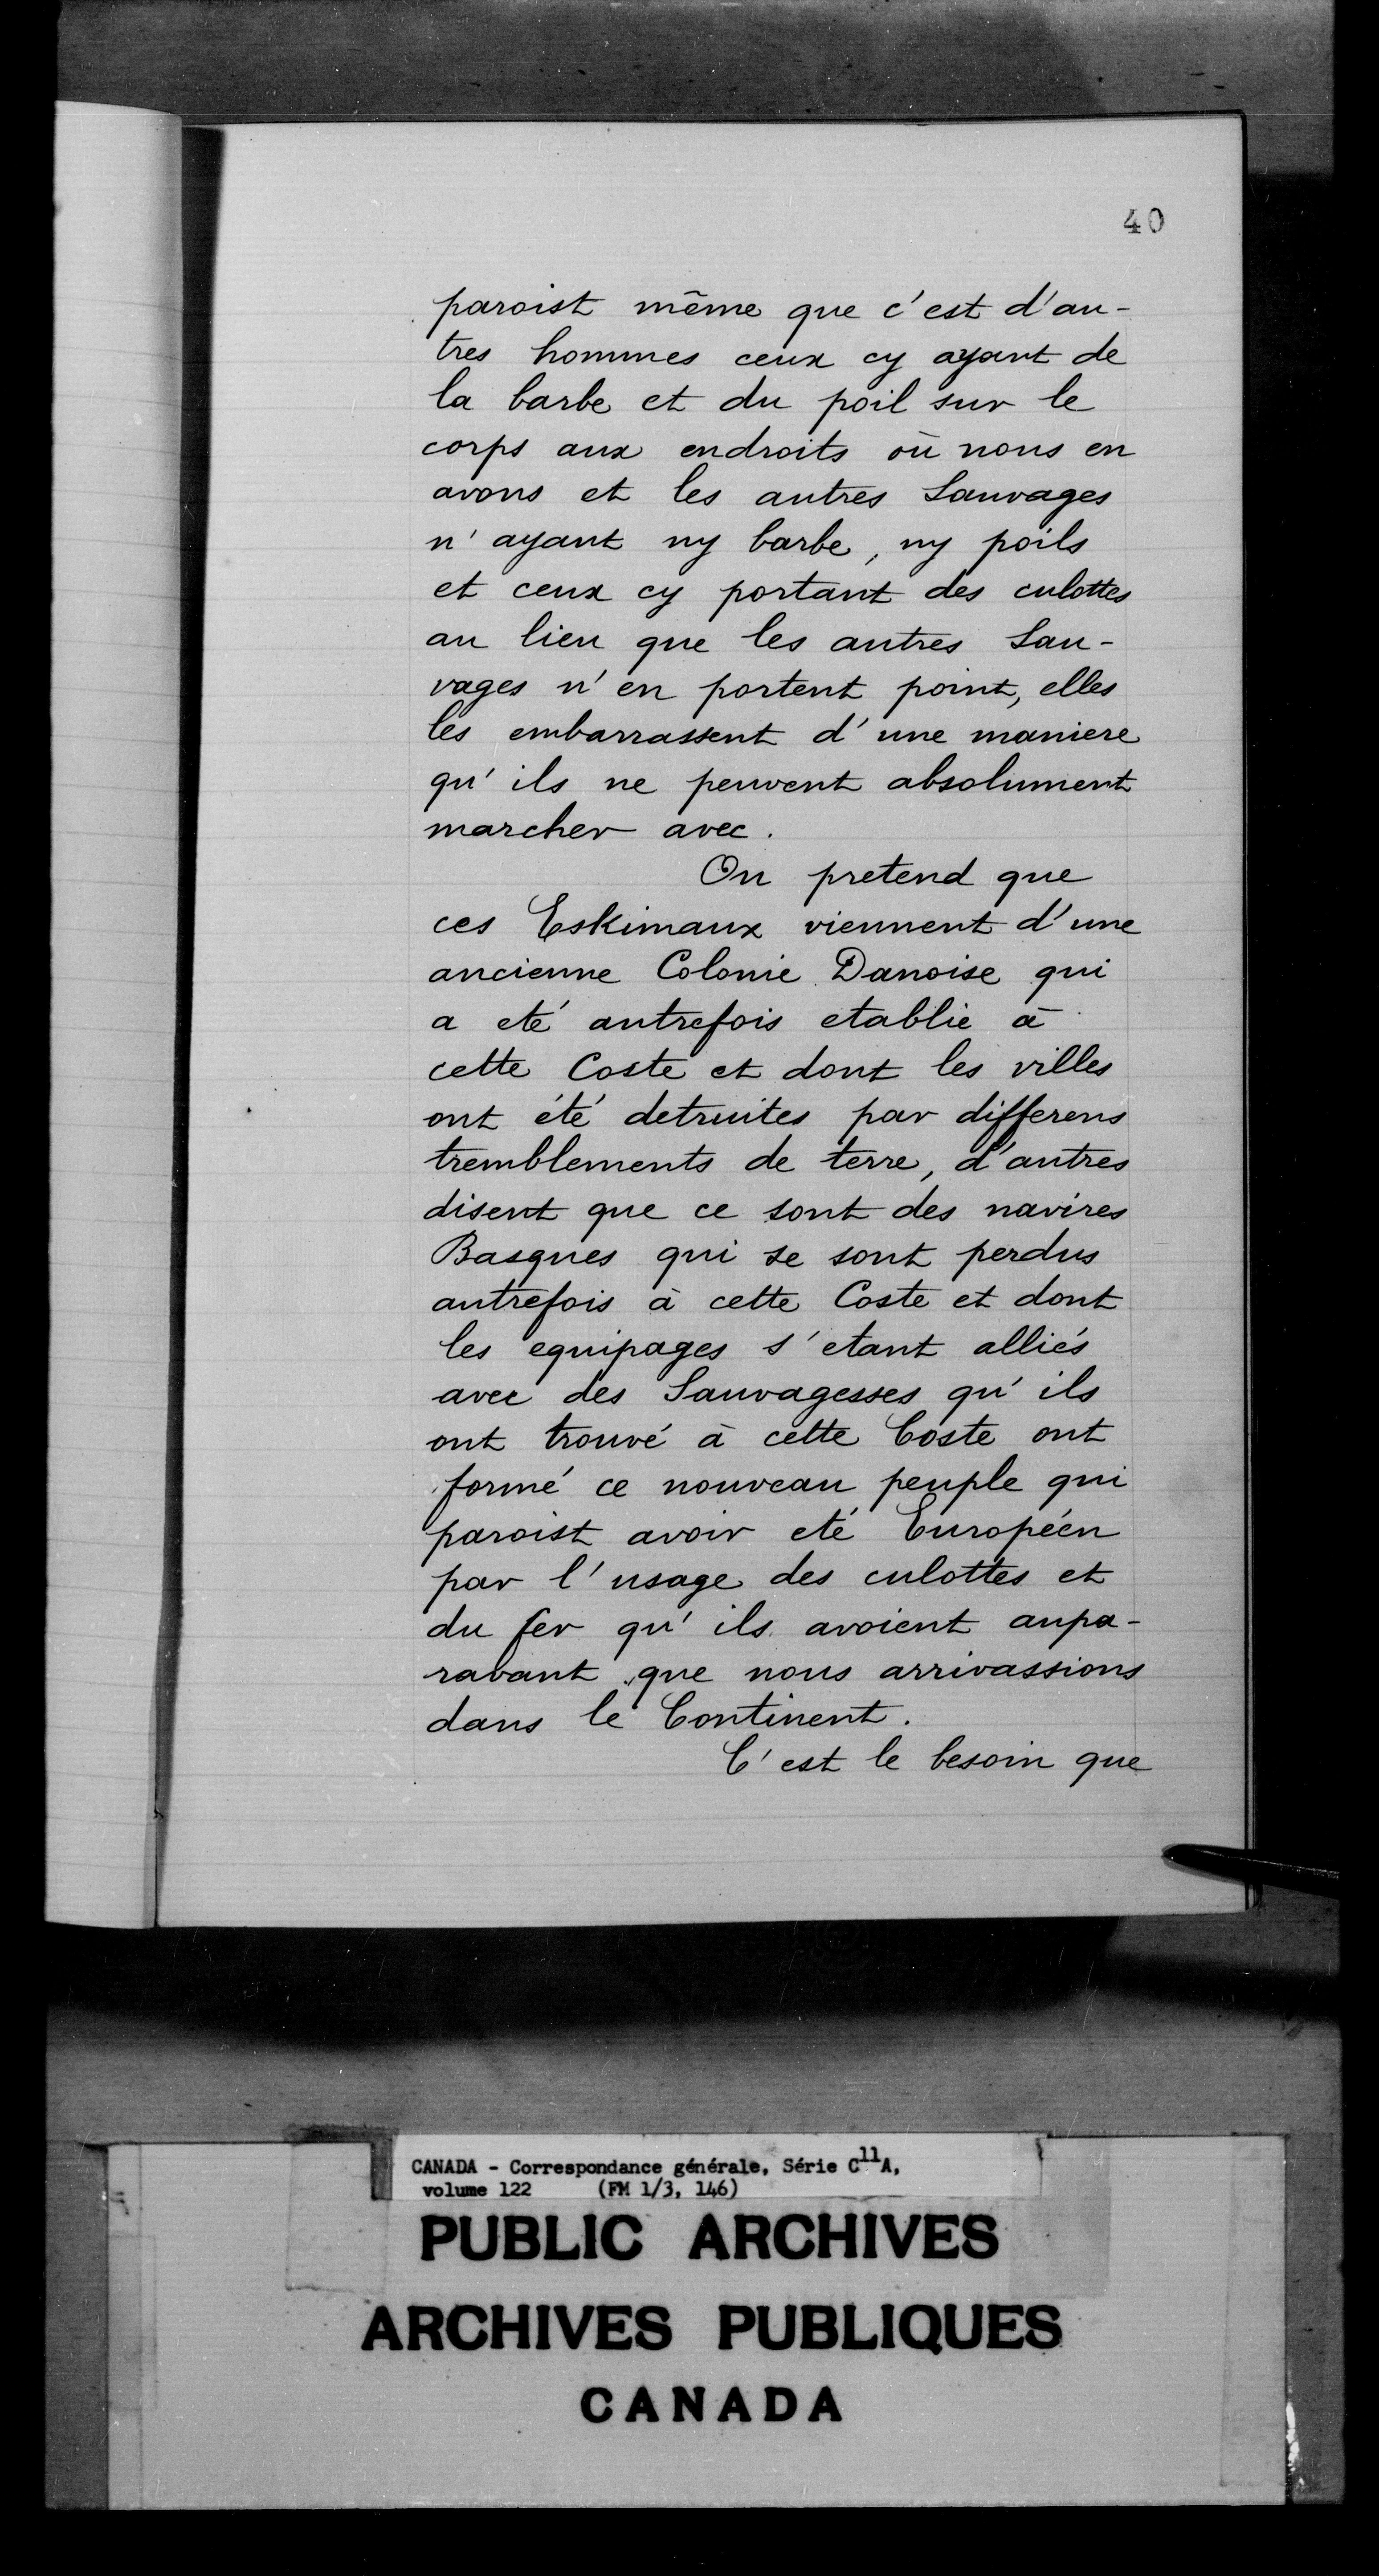 40
paroist même que c'est d'au-
tres hommes ceux cy ayant de
la barbe et du poil sur le
corps aux endroits où nous en
avons et les autres Sauvages
n'ayant ny barbe, ny poils
et ceux cy portant des culottes
au lieu que les autres Sau-
vages n'en portent point, elles
les embarrassent d'une maniere
qu'ils ne peuvent absolument
marcher avec.
On pretend que
ces Eskimaux viennent d'une
ancienne Colonie Danoise qui
a eté autrefois etablie à
cette Coste et dont les villes
ont été detruites par differens
tremblements de terre, d'autres
disent que ce sont des navires
Basques qui se sont perdus
autrefois à cette Coste et dont
les equipages s'etant alliés
avec des Sauvagesses qu'ils
ont trouvé à cette Coste ont
formé ce nouveau peuple qui
paroist avoir eté Européen
par l'usage des culottes et
du fer qu'ils avoient aupa-
ravant que nous arrivassions
dans le Continent.
C'est le besoin que
CANADA - Correspondance générale, Série C11A,
volume 122 (FM 1/3, 146)
PUBLIC ARCHIVES
ARCHIVES PUBLIQUES
CANADA